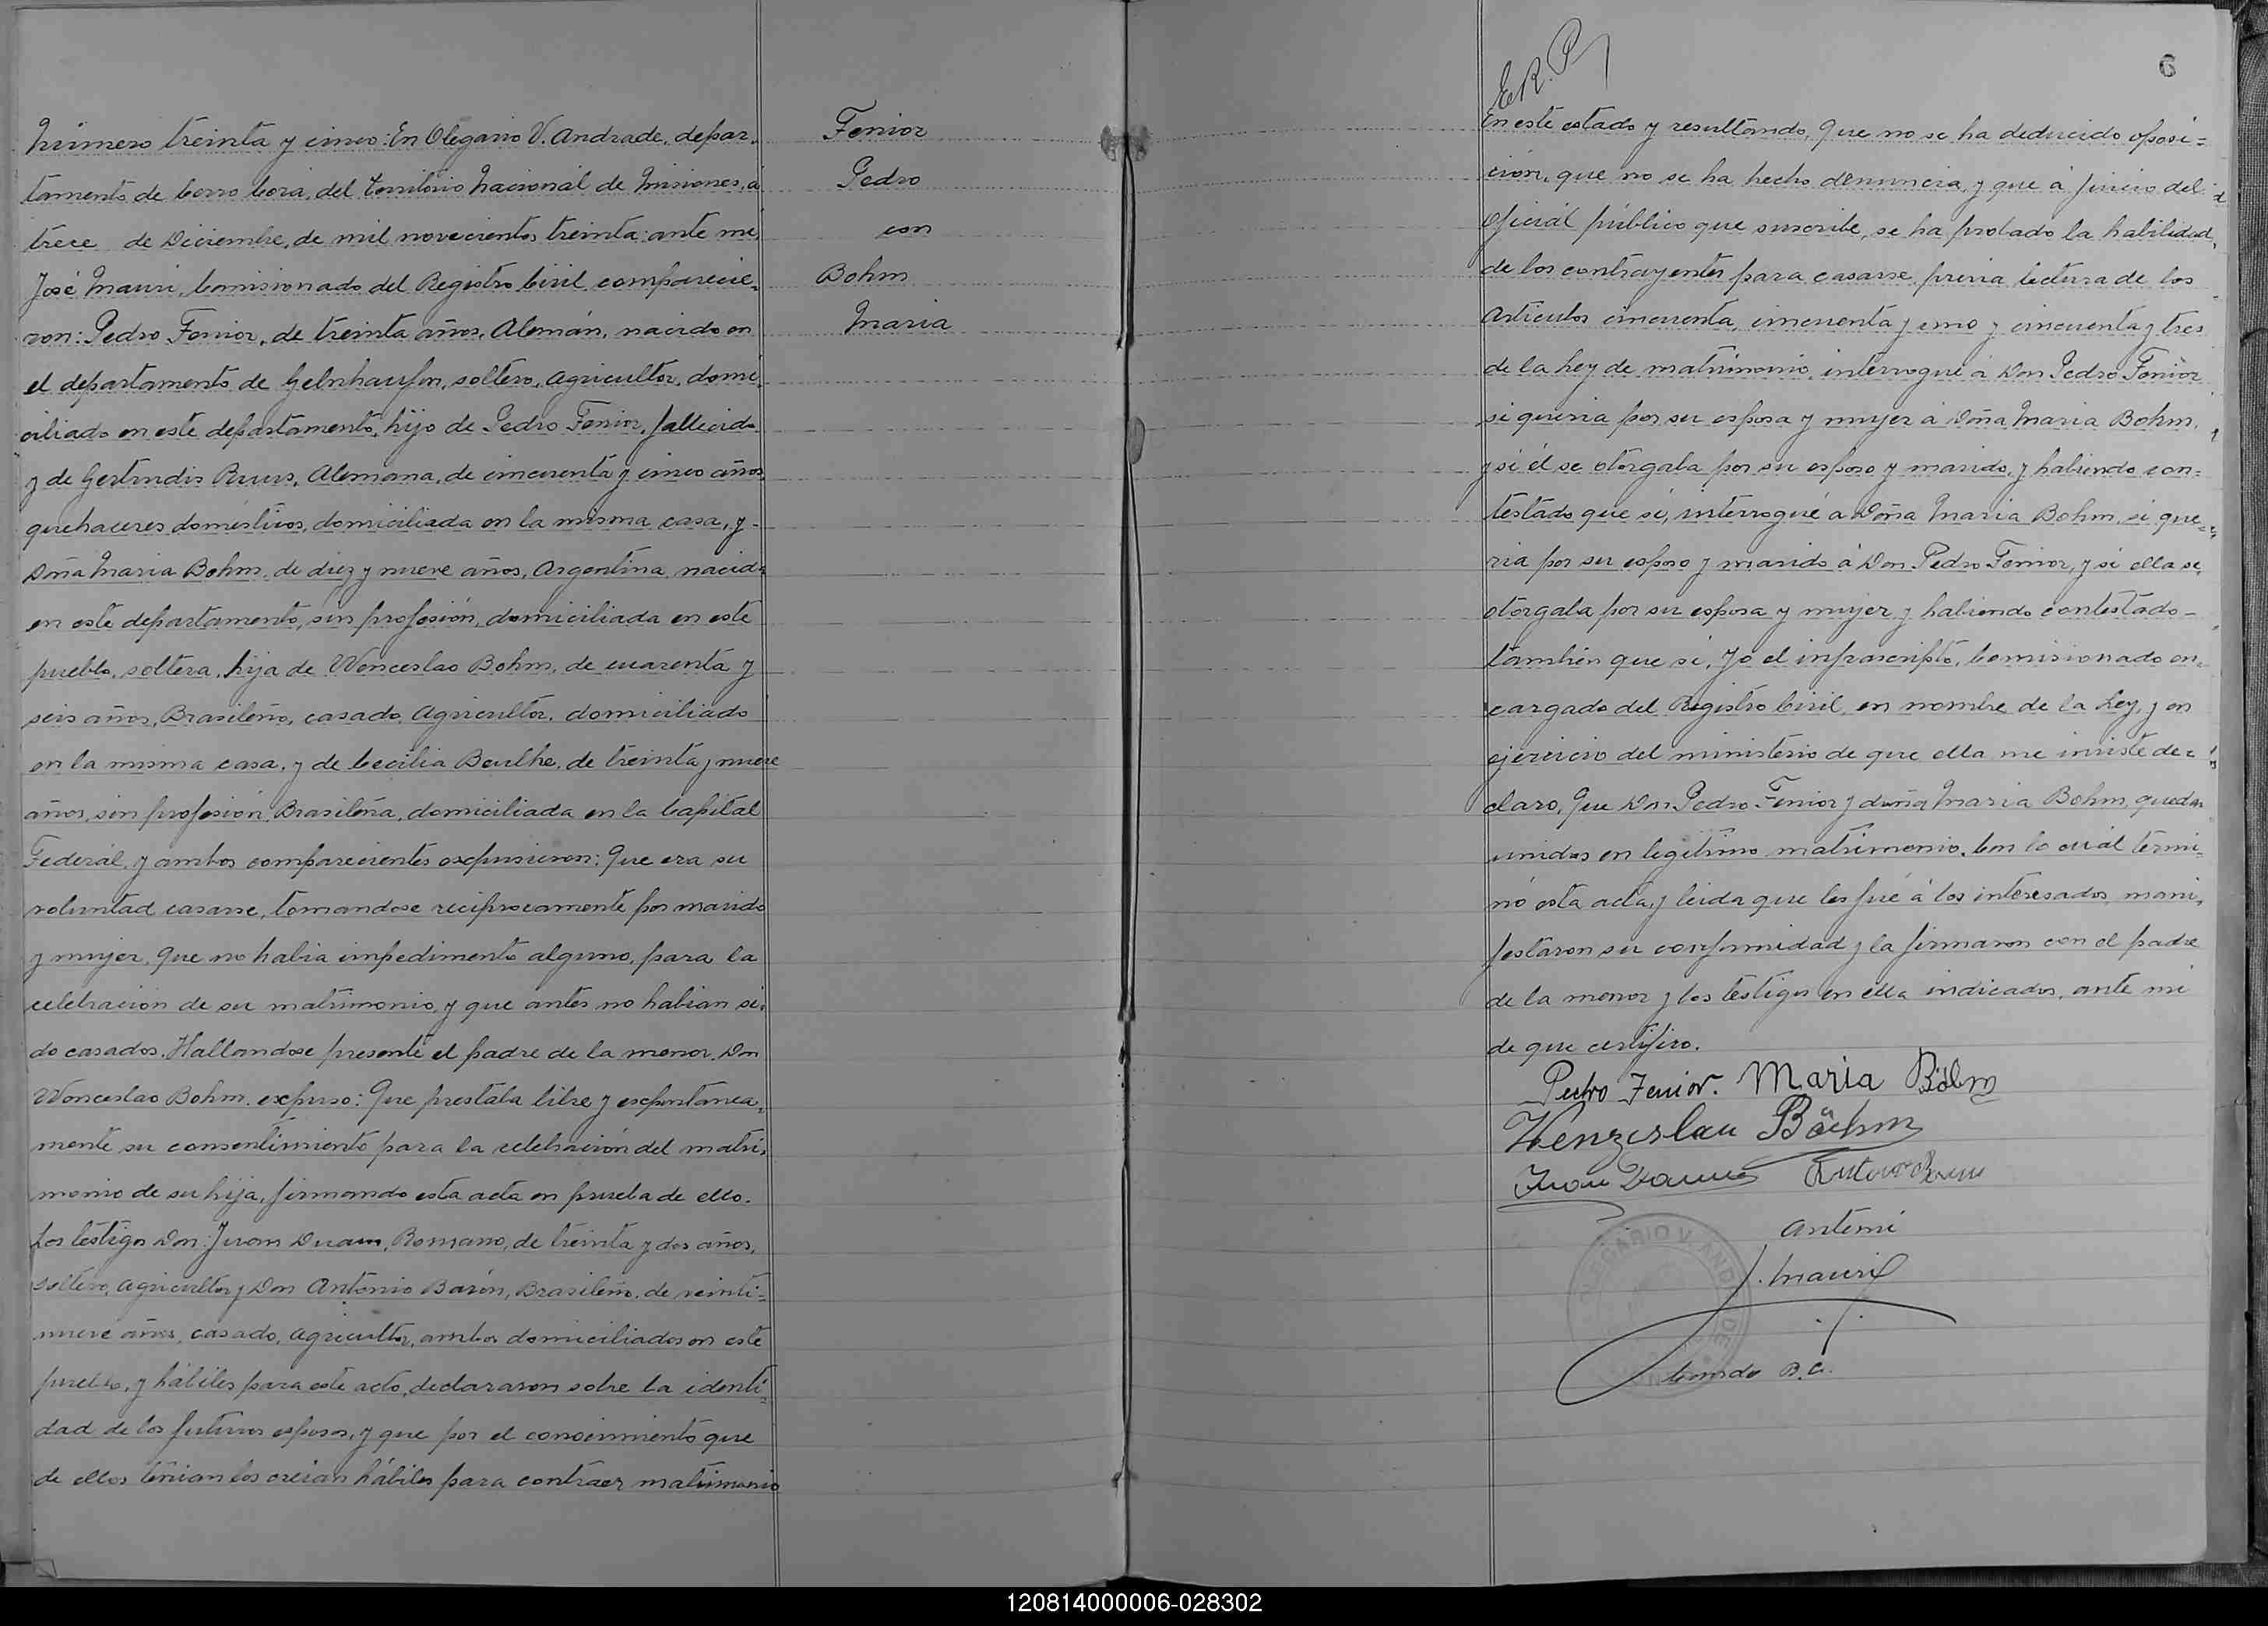 Número treinta y cinco: En Olegario V. Andrade, depar-
tamento de Cerro Corá, del Territorio Nacional de Misiones, a
trece de Diciembre, de mil novecientos treinta: ante mi,
José Mauri, Comisionado del Registro Civil comparecie-
ron: Pedro Fenior, de treinta años, Alemán, nacido en
el departamento de Gelnhausen, soltero, agricultor, domi-
ciliado en este departamento, hijo de Pedro Fenior, fallecido
y de Gertrudis Ruus, Alemana, de cincuenta y cinco años,
quehaceres domésticos, domiciliada en la misma casa, y-
Doña Maria Bohm, de diez y nueve años, Argentina, nacida
en este departamento, sin profesión, domiciliada en este
pueblo, soltera, hija de Wenceslao Bohm, de cuarenta y
seis años, Brasileño, casado, Agricultor, domiciliado
en la misma casa, y de Cecilia Beulke, de treinta y nueve
años, sin profesión, Brasileña, domiciliada en la Capital
Federál, y ambos comparecientes expusieron: Que era su
voluntad casarse, tomandose reciprocamente por marido
y mujer, que no habia impedimento alguno, para la
celebración de su matrimonio, y que antes no habian si-
do casados. Hallandose presente el padre de la menor, Don
Wenceslao Bohm, expuso: Que prestaba libre y espontanea-
mente su consentimiento para la celebración del matri-
monio de su hija, firmando esta acta en prueba de ello.
Los testigos Don: Juan Duam, Romano, de treinta y dos años,
soltero, agricultor y Don Antonio Barón, Brasileño, de veinti-
nueve años, casado, agricultor, ambos domiciliados en este
pueblo, y hábiles para este acto, declararon sobre la identi-
dad de los futuros esposos, y que por el conocimiento que
de ellos tenian los creian hábiles para contraer matrimonio
Fenior
Pedro
con
Bohm
Maria
6
E.R.P.
En este estado y resultando, Que no se ha deducido oposi=
ción, que no se ha hecho denuncia, y que á juicio del
Oficiál público que suscribe, se ha probado la habilidad,
de los contrayentes para casarse, prévia lectura de los
Articulos cincuenta, cincuenta y uno y cincuenta y tres
de la Ley de matrimonio, interrogué á Don Pedro Fenior
si queria por su esposa y mujer á Doña Maria Bohm,
y si él se otorgaba por su esposo y marido, y habiendo con=
testado que si, interrogué a Doña Maria Bohm, si que=
ria por su esposo y marido á Don Pedro Fenior, y si ella se
otorgaba por su esposa y mujer y habiendo contestado-
también que si, Yo el infrascripto, Comisionado en-
cargado del Registro Civil, en nombre de la Ley, y en
ejercicio del ministerio de que ella me inviste de=
claro, Que Don Pedro Fenior y doña Maria Bohm, quedan
unidos en legitimo matrimonio. Con lo cuál termi-
nó esta acta, y leida que les fué á los interesados, mani-
festaron su conformidad y la firmaron con el padre
de la menor y los testigos en ella indicados, ante mi
de que certifico.
Pedro Fenior. Maria Böhm
Wenzeslau Böhm
Juan
Ante mi
J. Mauri
Comdo R.C.
OLEGARIO V. ANDRADE
120814000006-028302